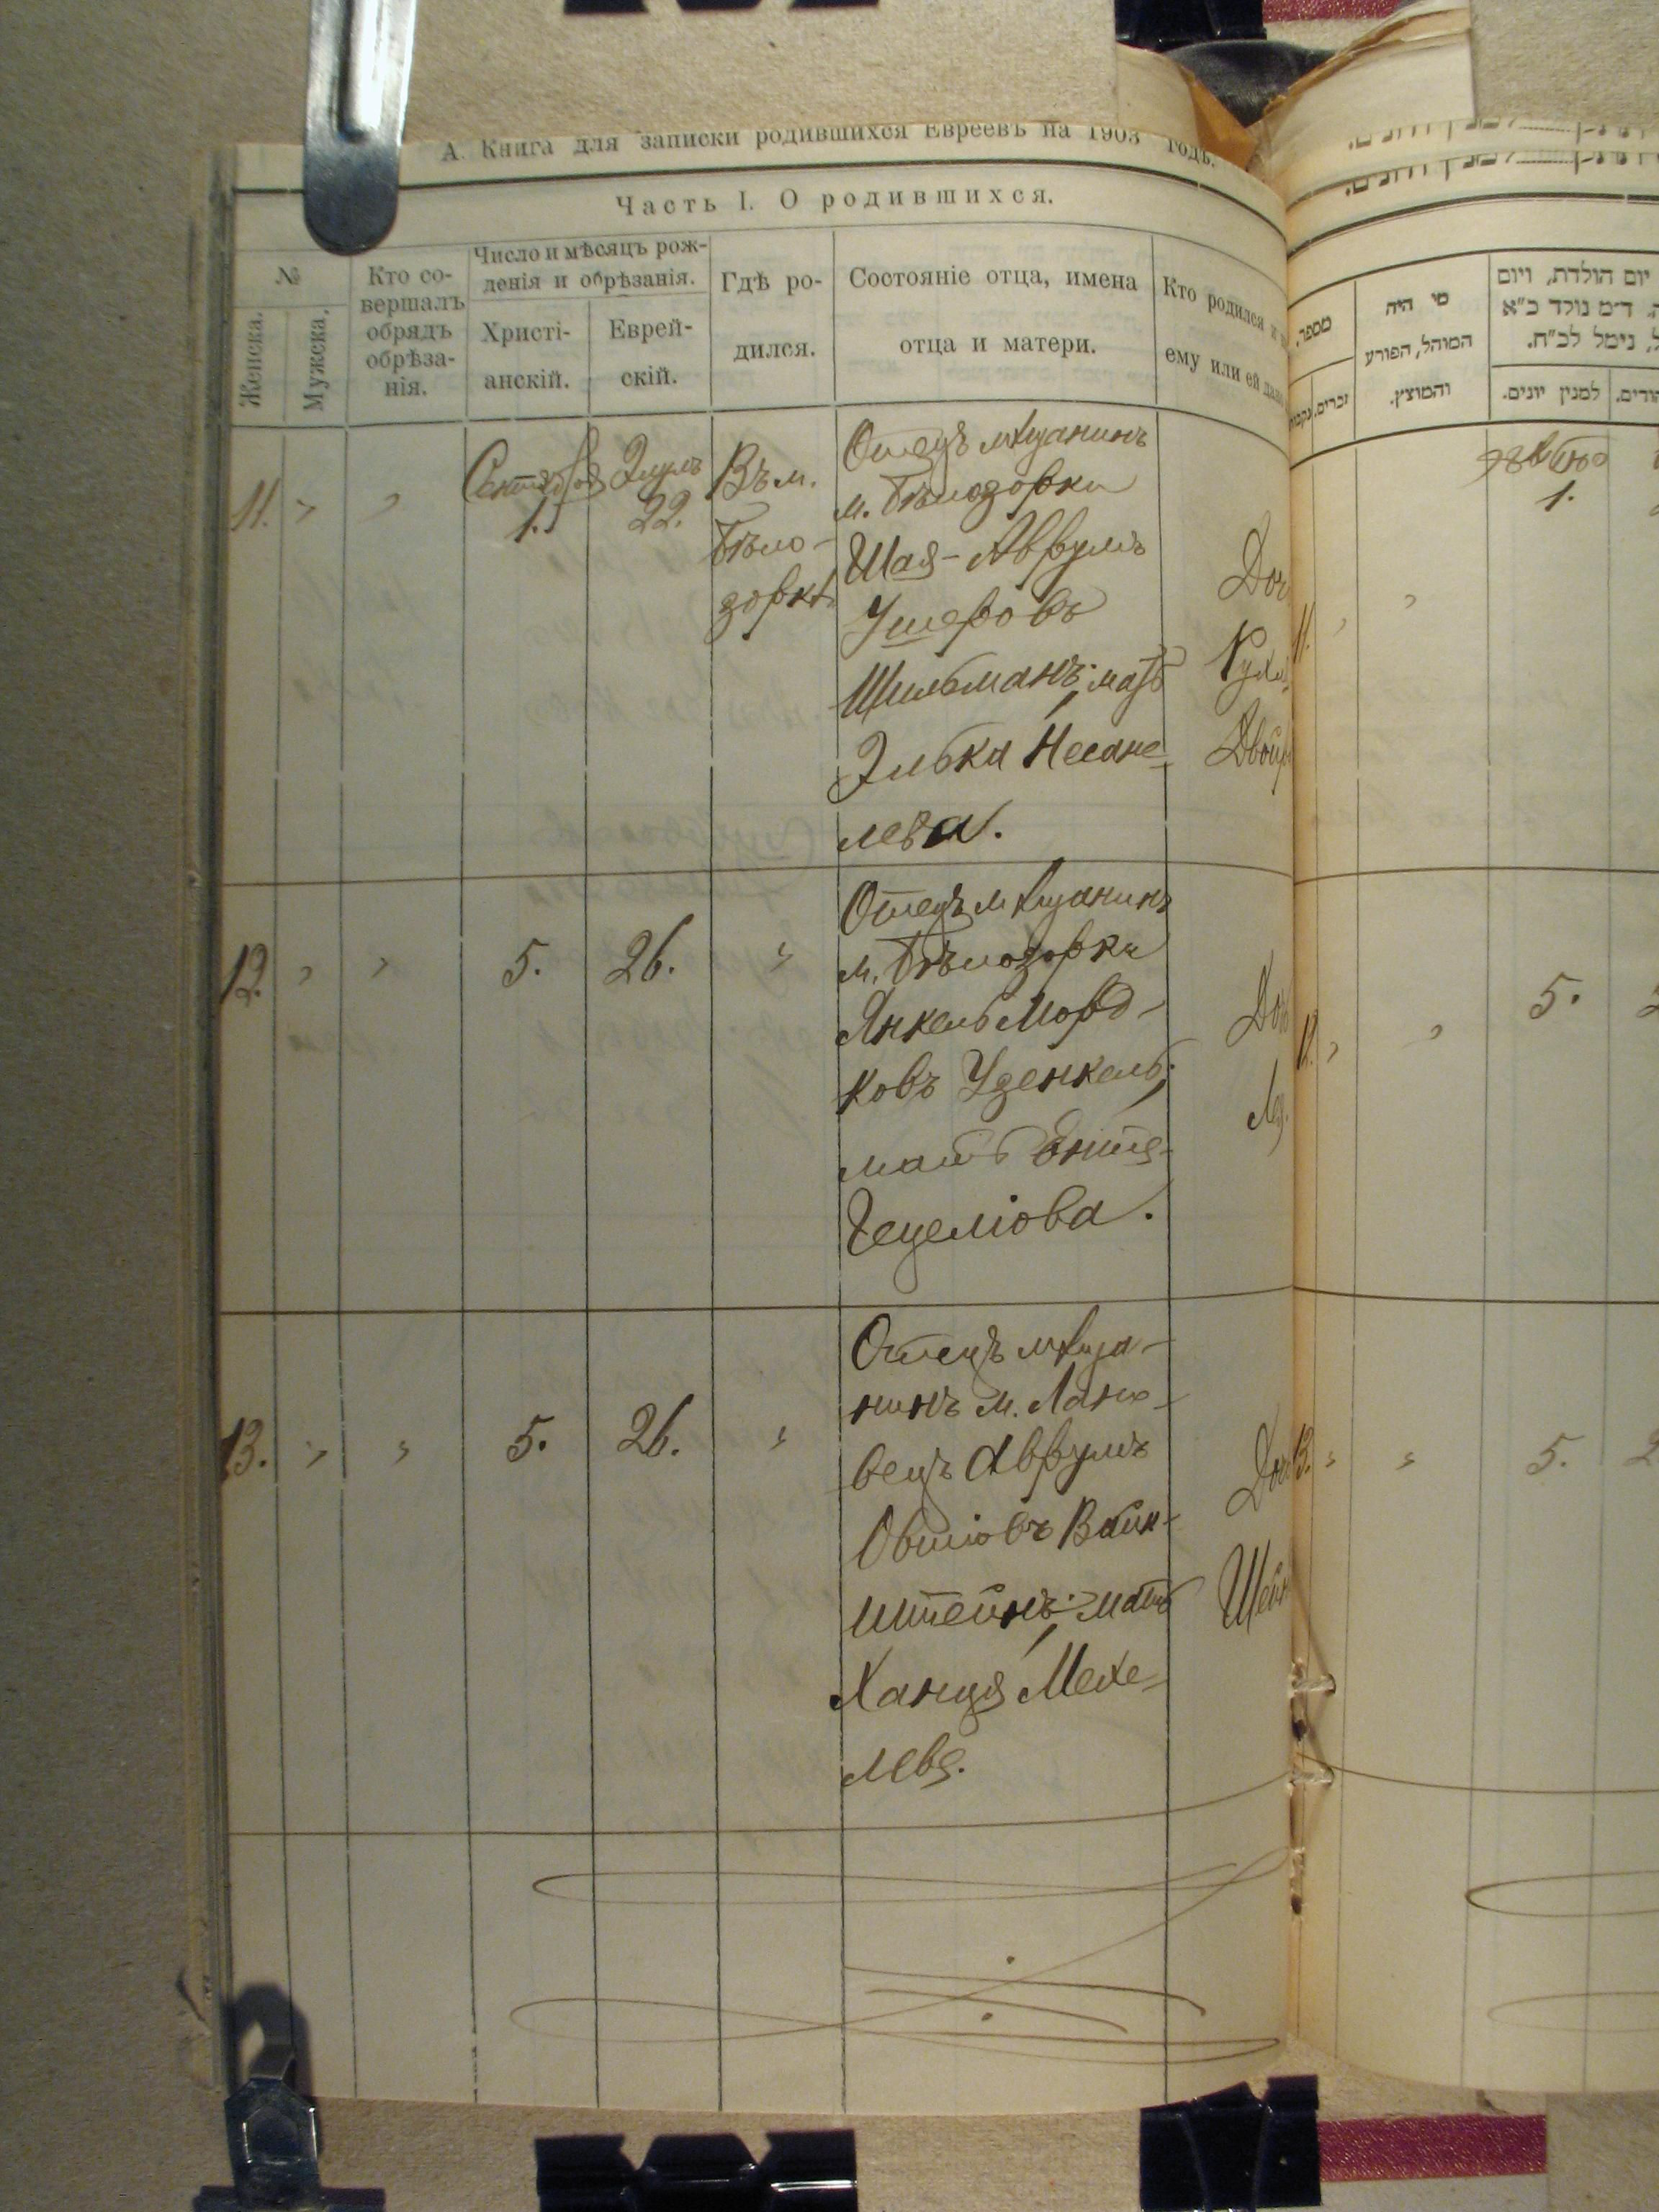 А. Книга для записки родившихся Евреевъ на 1903 годъ.
Часть I. О родившихся.
№
Женска.
Мужска.
Кто со-
вершалъ
обрядъ
обрѣза-
нія.
Число и мѣсяцъ рож-
денія и обрѣзанія.
Христі-
анскій.
Еврей-
скій.
Гдѣ ро-
дился.
Состояніе отца, имена
отца и матери.
Кто родился и
ему или ей
11.
Сентября
1.
Элулъ
22.
Въ м.
Бѣло-
зоркѣ
Отецъ мѣщанинъ
м. Бѣлозорки
Шая-Аврумъ
Ушеровъ
Шильманъ; мать
Элька Несане-
лева.
Доч
Рухл
Двойр
12.
5.
26.
Отецъ мѣщанинъ
м. Бѣлозорки
Янкель Морд-
ковъ Уденкель;
мать Ентя
Гецеліова.
Доч
13.
5.
26.
Отецъ мѣща-
нинъ м. Лано-
вецъ Аврумъ
Овшіовъ Вайн-
штейнъ; мать
Ханця Мехе-
лева.
Доч
Шейн
מספר.
זכרים.
מי היה
המוהל, הפורע
והמוצץ.
יום הולדת, ויום
ד״מ נולד כ״א
נימל לכ״ח.
למנין יונים.
11.
1.
12.
5.
13.
5.